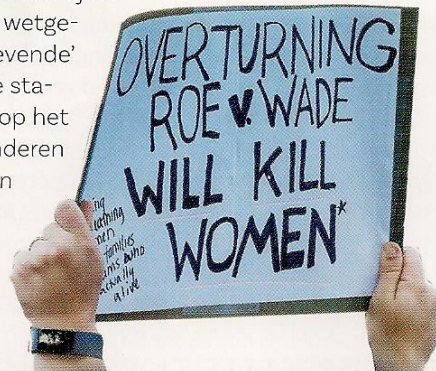 wetge-
evende’
e sta-
op het
nderen
n
OVERTURNING
ROE V. WADE
WILL KILL
WOMEN*
families
who
actually
alive